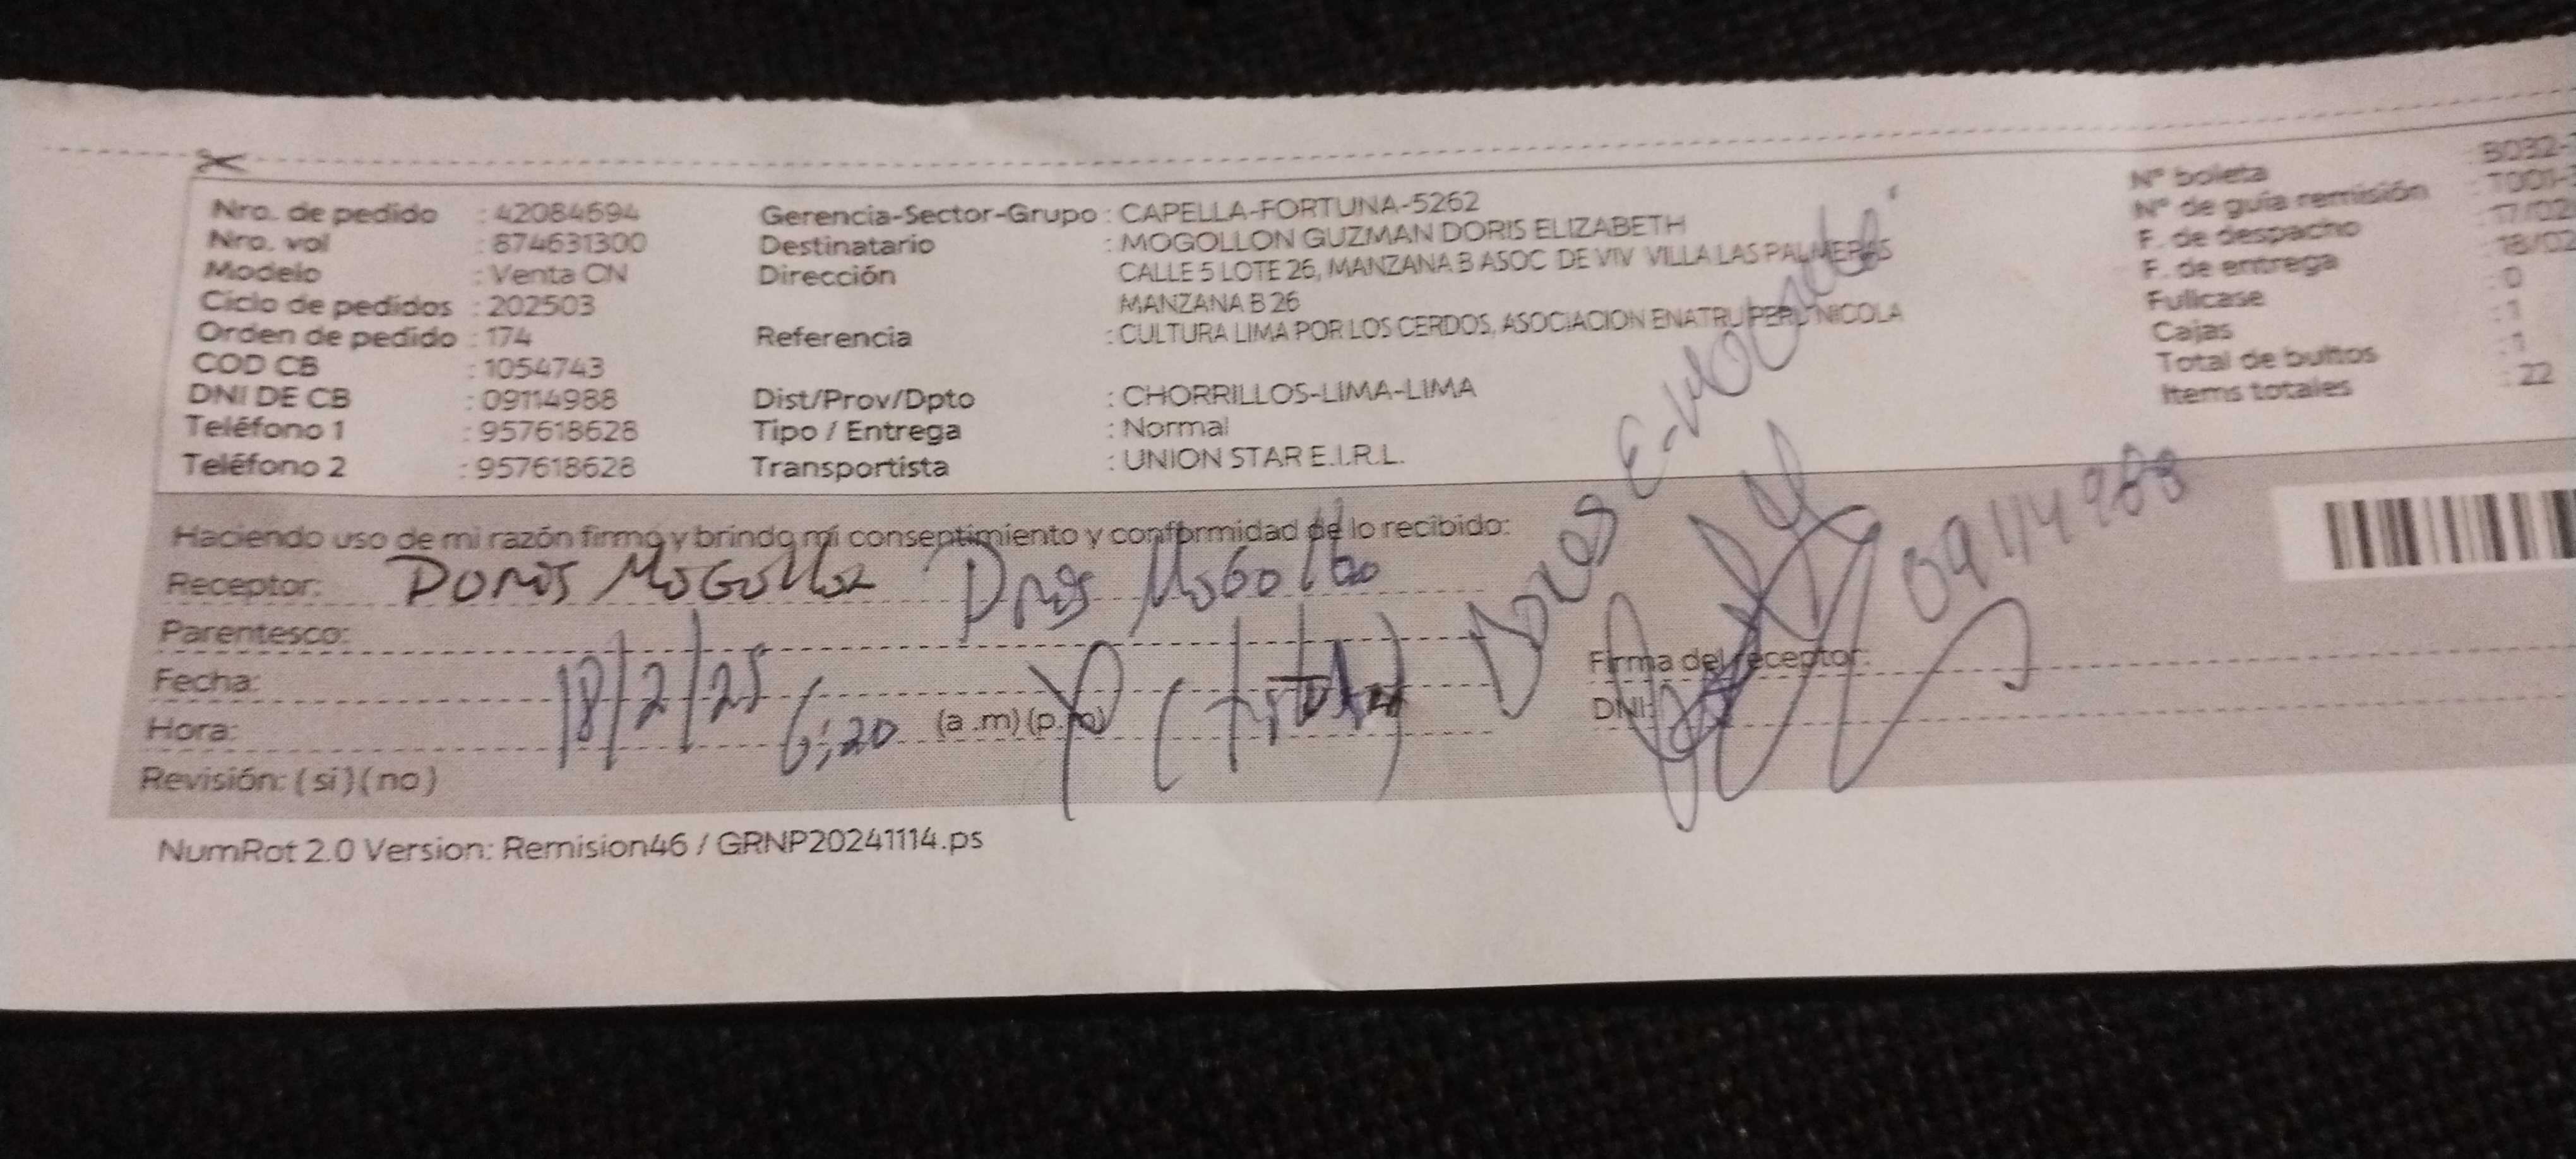 Nro. de pedido : 42084694
Nro. vol : 874631300
Modelo : Venta CN
Ciclo de pedidos : 202503
Orden de pedido : 174
COD CB : 1054743
DNI DE CB : 09114988
Teléfono 1 : 957618628
Teléfono 2 : 957618628
Gerencia-Sector-Grupo : CAPELLA-FORTUNA-5262
Destinatario : MOGOLLON GUZMAN DORIS ELIZABETH
Dirección CALLE 5 LOTE 26, MANZANA B ASOC DE VIV VILLA LAS PALMERAS
MANZANA B 26
Referencia : CULTURA LIMA POR LOS CERDOS, ASOCIACION ENATRU PERU NICOLA
Dist/Prov/Dpto : CHORRILLOS-LIMA-LIMA
Tipo / Entrega : Normal
Transportista : UNION STAR E.I.R.L.
N° boleta : B032-
N° de guía remisión : T001-
F. de despacho : 17/02
F. de entrega : 18/02
Fullcase : 0
Cajas : 1
Total de bultos : 1
Items totales : 22
Haciendo uso de mi razón firmo y brindo mi consentimiento y conformidad de lo recibido:
Receptor: Doris Mogollon Doris Mogollon
Parentesco:
Fecha: 18/2/25
Hora: 6:20 (a.m)(p.m)
Revisión: (si)(no)
Doris E.
Firma del receptor:
DNI:
09114988
NumRot 2.0 Version: Remision46 / GRNP20241114.ps